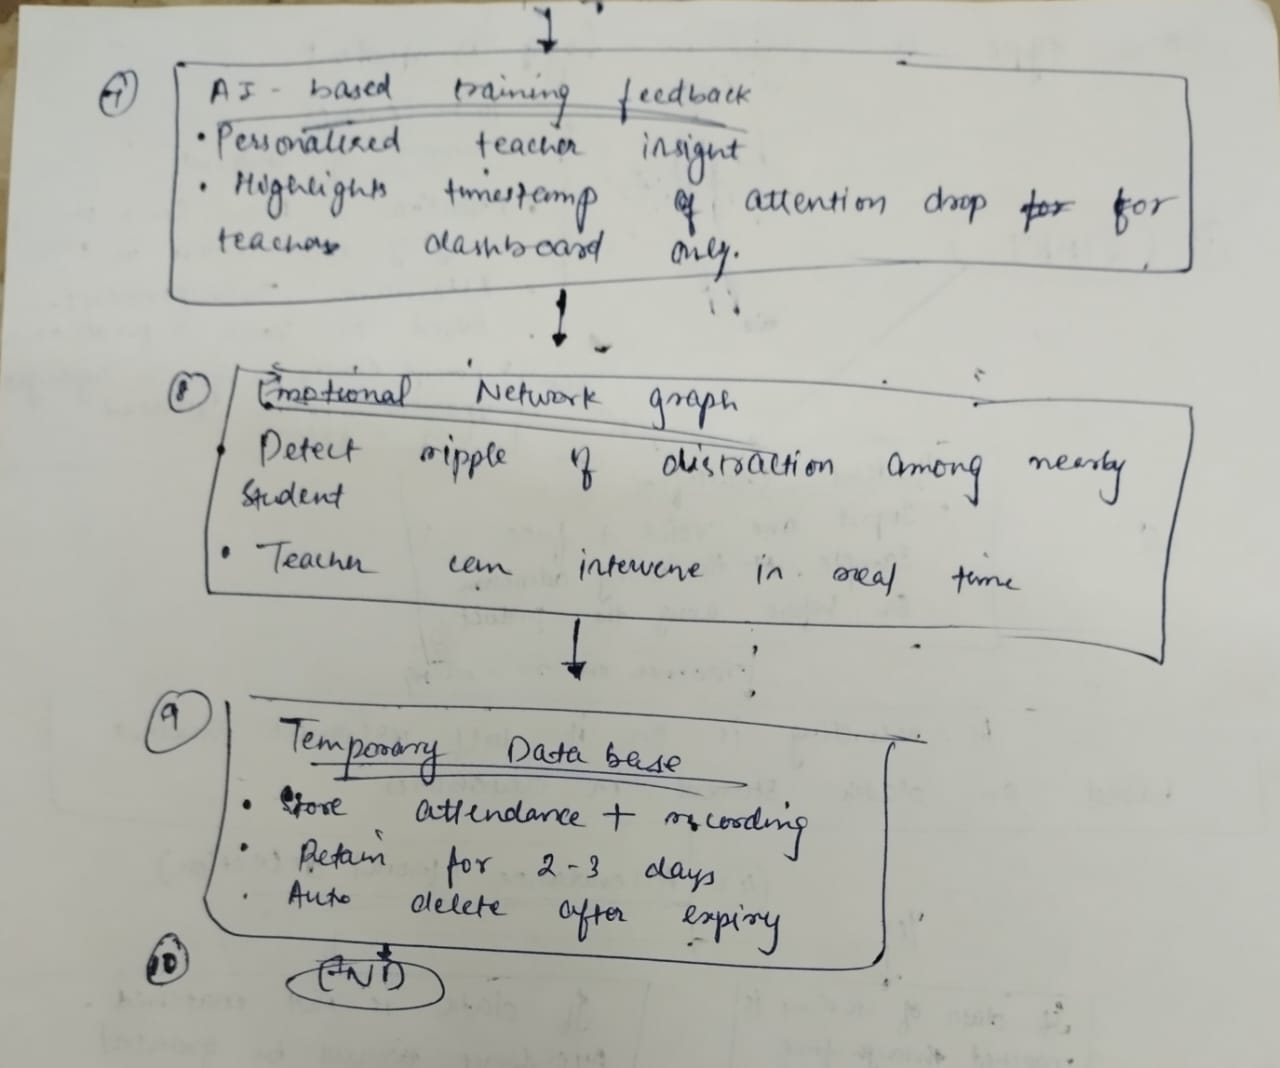 7
AI - based training feedback
• Personalized teacher insight
• Highlights timestamp of attention drop for for
teachers dashboard only.
8
Emotional Network graph
• Detect ripple of distraction among nearby
student
• Teacher can intervene in real time
9
Temporary Data base
• Store attendance + recording
• Retain for 2-3 days
• Auto delete after expiry
10
END